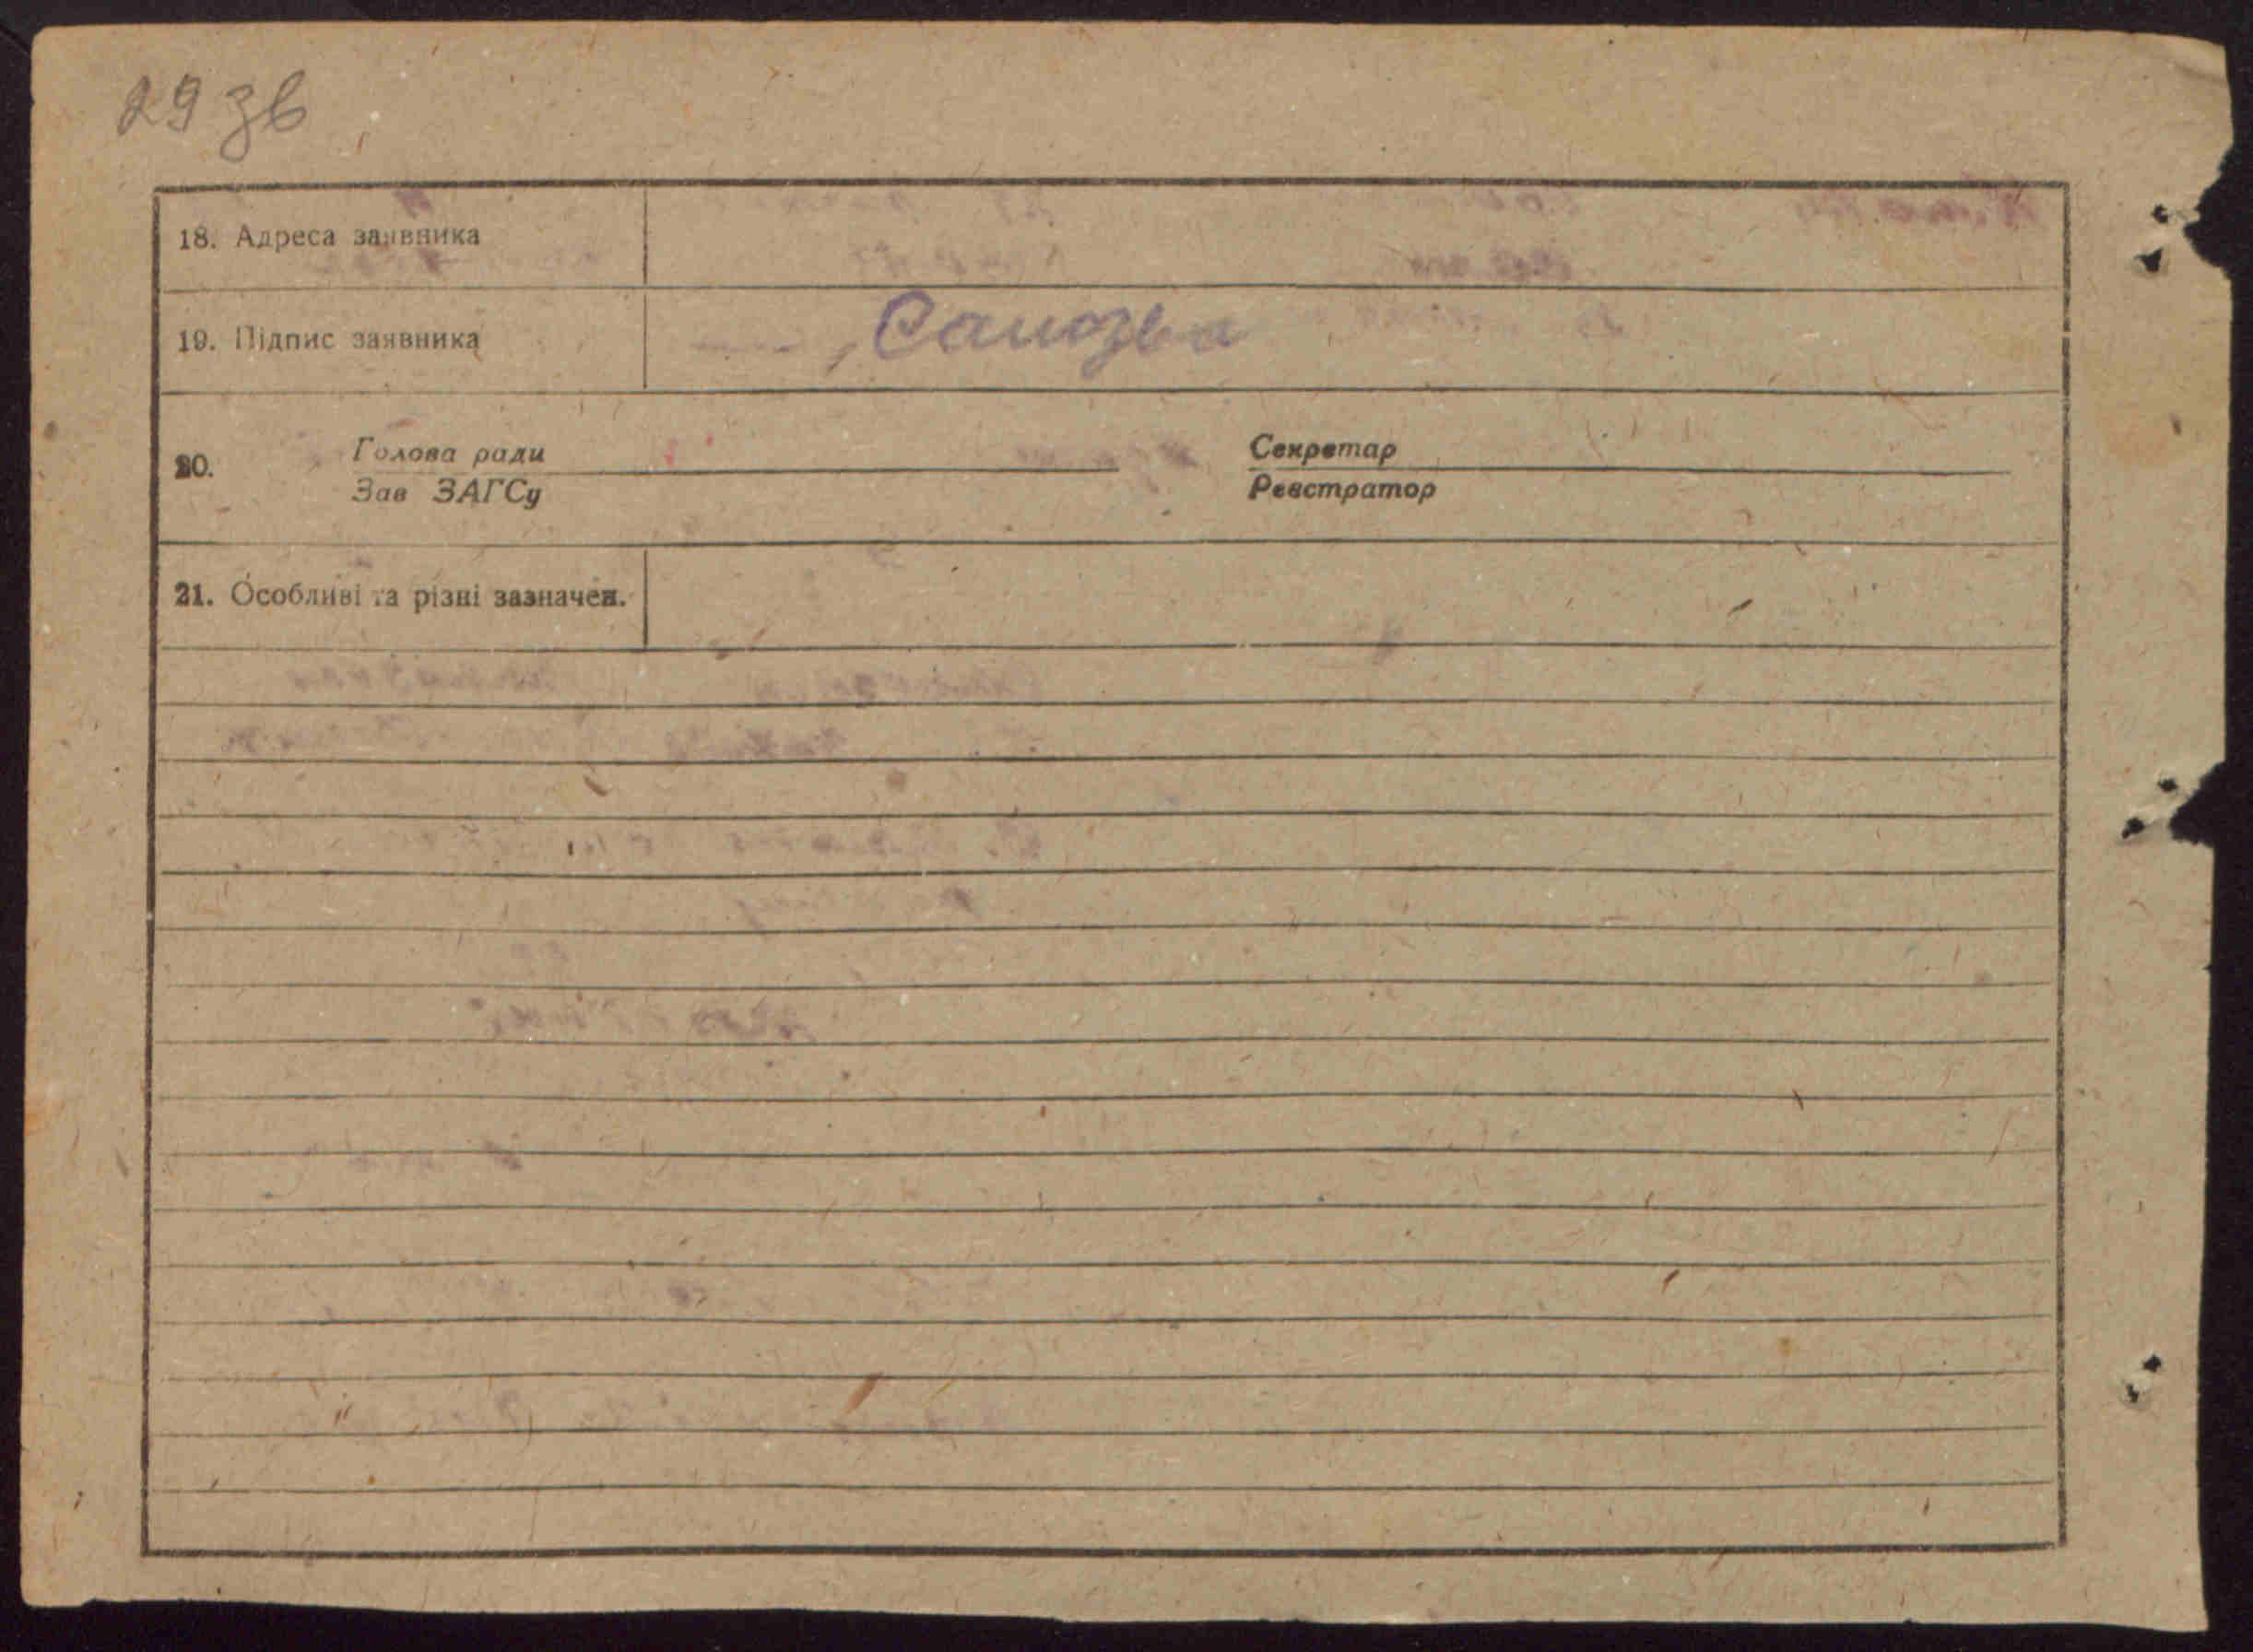 29 зв
18. Адреса заявника
19. Підпис заявника
20. Голова ради Секретар
Зав ЗАГСу Реєстратор
21. Особливі та різні зазначен.